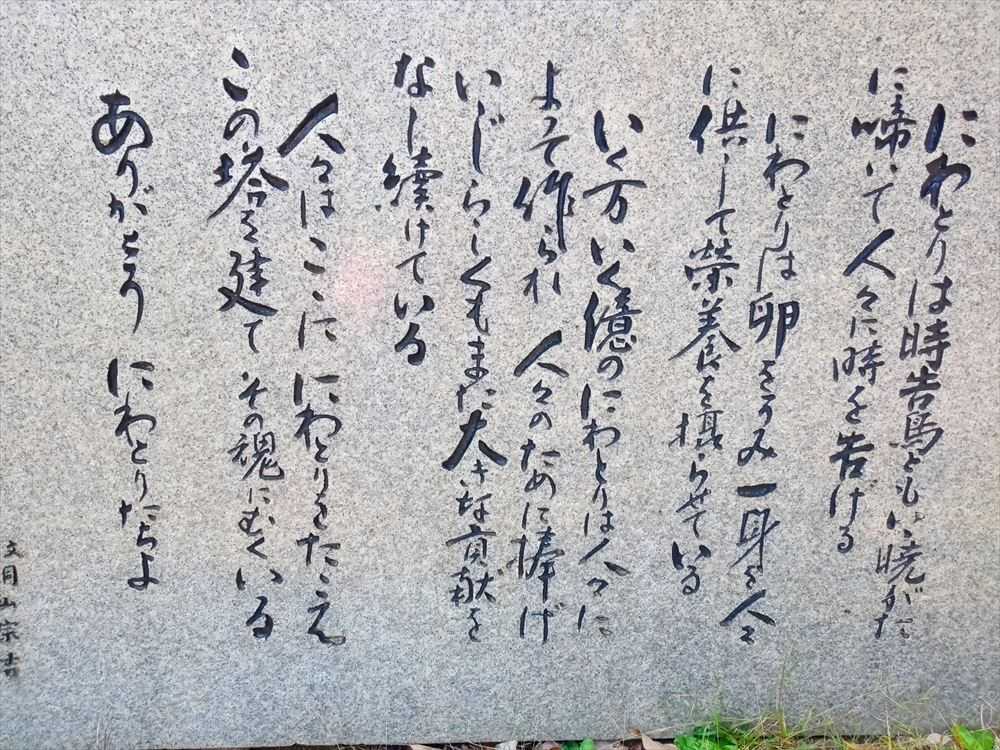 にわとりは時告鳥ともいい暁がた
に啼いて人々に時を告げる
にわとりは卵をうみ一身を人々
に供して榮養を摂らせている
いく万いく億のにわとりは人々に
よって作られ 人々のために捧げ
いじらしくもまた大きな貢献を
なし続けている
人々はここに にわとりをたたえ
この塔を建て その魂にむくいる
ありがとう にわとりたちよ
文 同山宗吉